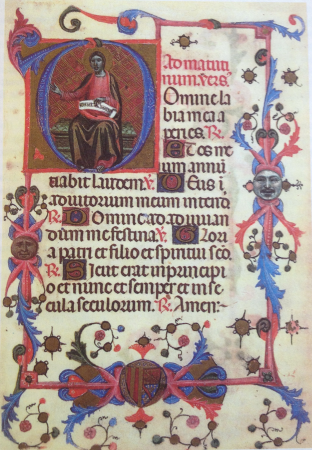 Ad matuti
num. vers.
Domine la
bia mea a
peries. R.
Et os me
um annū
ciabit laudem. V. Deus ī
adiutorium meum intend
R. Domine ad adiuuan
dum me festina. V. Glori
a patri et filio et spiritui sco
R. Sicut erat in principi
o et nunc et semper et in se
cula seculorum. R. Amen:-